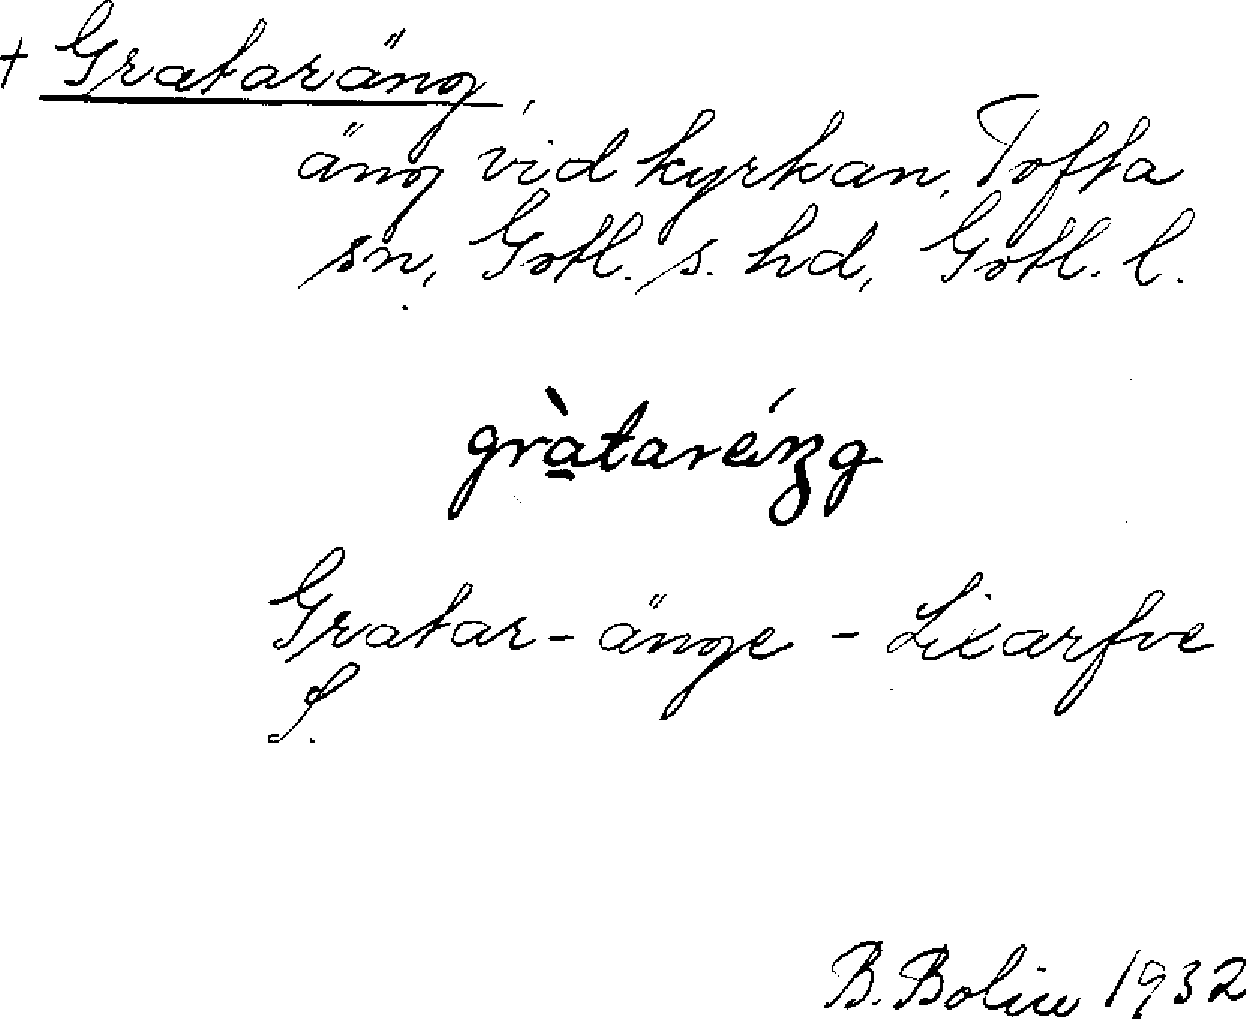 + Grataräng,
äng vid kyrkan, Tofta
sn, Gotl. s. hd, Gotl. l.
gràtaréŋg
Gratar-änge - Lixarfve
S.
B. Bolin 1932